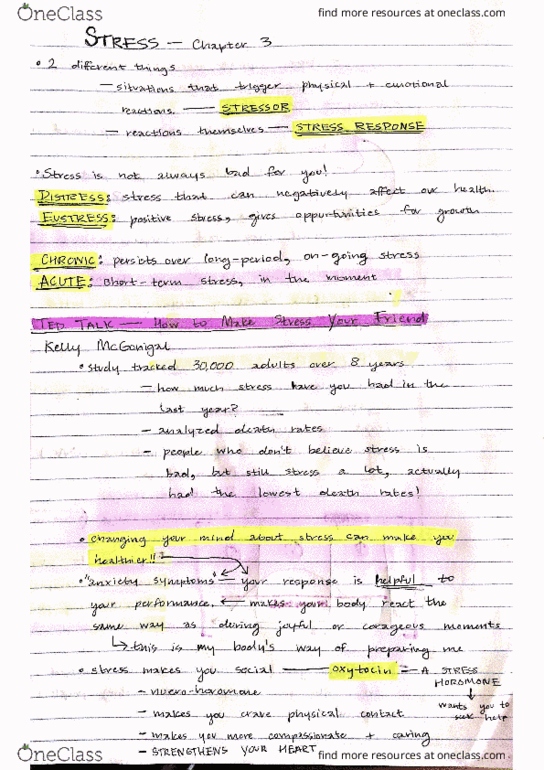 OneClass
find more resources at oneclass.com
STRESS — Chapter 3
• 2 different things
— situations that trigger physical + emotional
reactions. — STRESSOR
— reactions themselves — STRESS RESPONSE
• Stress is not always bad for you!
DISTRESS: stress that can negatively affect our health.
EUSTRESS: positive stress, gives oppurtunities for growth
CHRONIC: persists over long-period, on-going stress
ACUTE: short-term stress, in the moment
TED TALK — How to Make Stress Your Friend
Kelly McGonigal
• study tracked 30,000 adults over 8 years
— how much stress have you had in the
last year?
— analyzed death rates
— people who don't believe stress is
bad, but still stress a lot, actually
had the lowest death rates!
• changing your mind about stress can make you
healthier!!
• "anxiety symptoms" — your response is helpful to
your performance. ← makes your body react the
same way as during joyful or corageous moments
↳ this is my body's way of preparing me
• stress makes you social — oxytocin = A STRESS
HOROMONE
↓
wants you to
seek help
— nuero-horomone
— makes you crave physical contact
— makes you more compassionate + caring
— STRENGTHENS YOUR HEART
OneClass
find more resources at oneclass.com